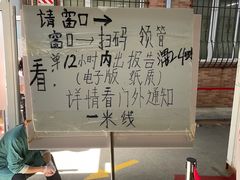 请留口→
看 窗口→扫码 领管
单12小时内出报告
(电子版 纸质)
详情看门外通知
一米线